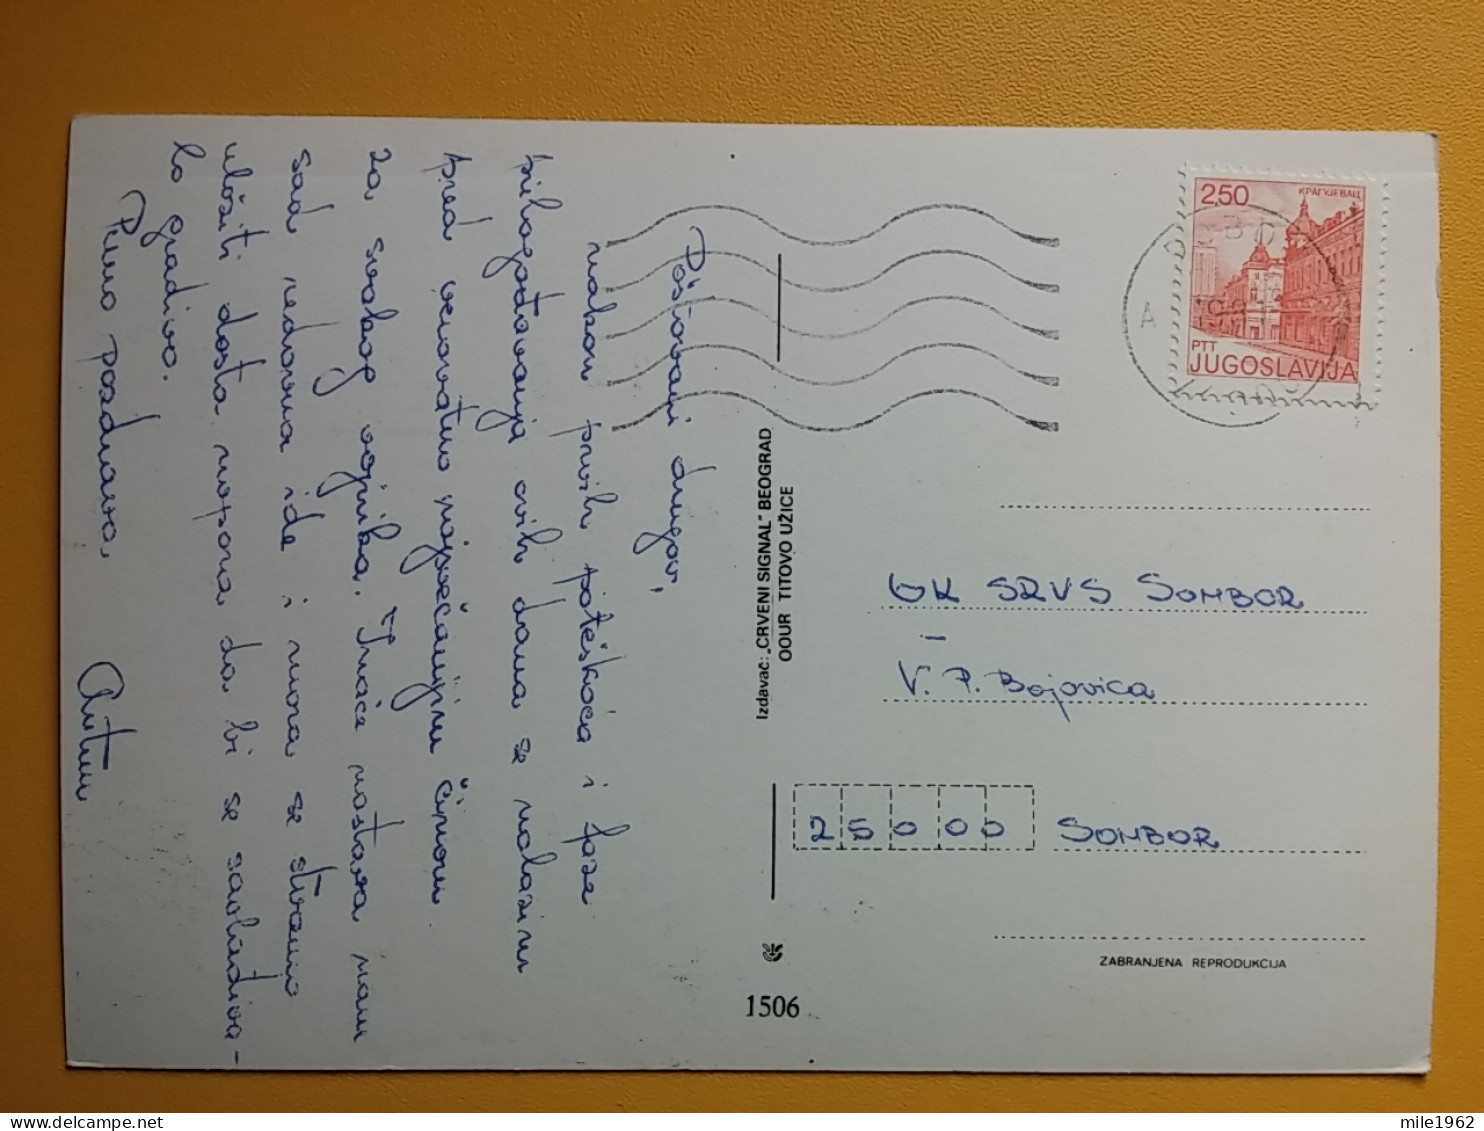 Poštovani drugovi,
nakon prvih poteškoća i faze
prilagođavanja ovih dana se nalazim
pred verovatno najsvečanijim činom
za svakog vojnika. Inače nastava nam
sad redovna ide i mora se stvarno
uložiti dosta napora da bi se savladiva-
lo gradivo.
Puno pozdrava,
Antun
Izdavač: „CRVENI SIGNAL" BEOGRAD
OOUR TITOVO UŽICE
1506
2,50
КРАГУЈЕВАЦ
PTT
JUGOSLAVIJA
A
OK SRVS SOMBOR
i
V. P. Bojovića
25000 SOMBOR
ZABRANJENA REPRODUKCIJA
mile1962